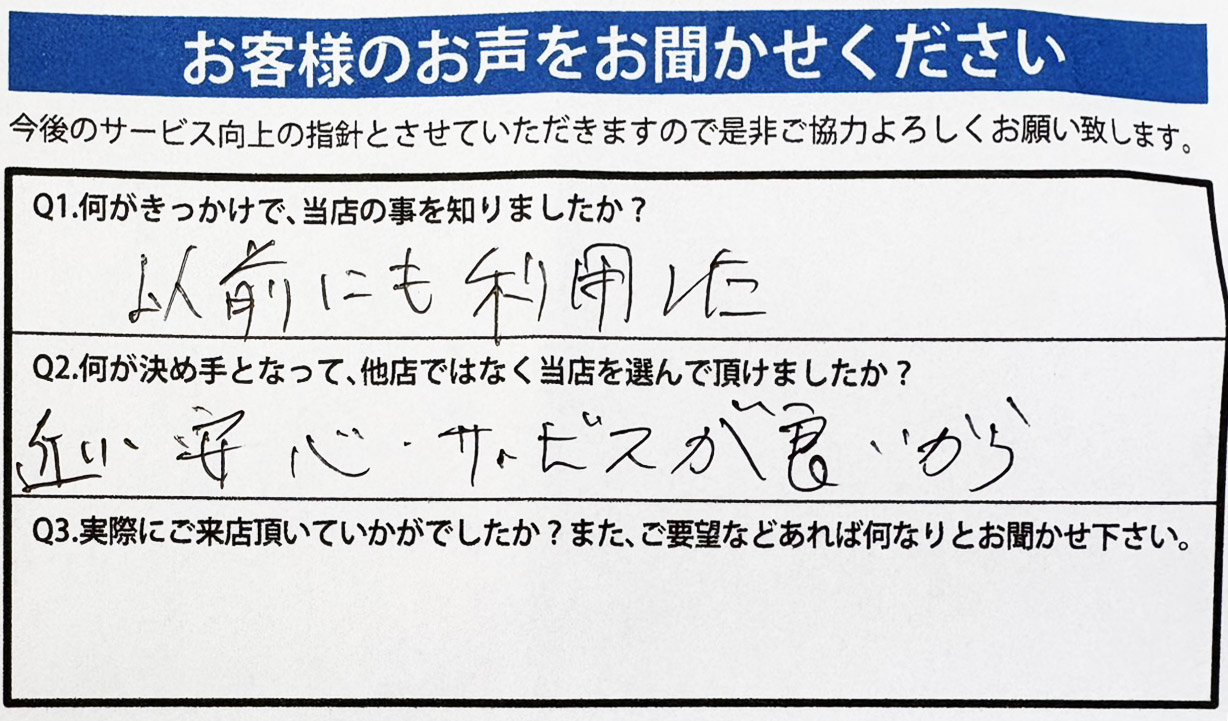 お客様のお声をお聞かせください
今後のサービス向上の指針とさせていただきますので是非ご協力よろしくお願い致します。
Q1.何がきっかけで、当店の事を知りましたか？
以前にも利用した
Q2.何が決め手となって、他店ではなく当店を選んで頂けましたか？
近い、安心・サービスが良いから
Q3.実際にご来店頂いていかがでしたか？また、ご要望などあれば何なりとお聞かせ下さい。